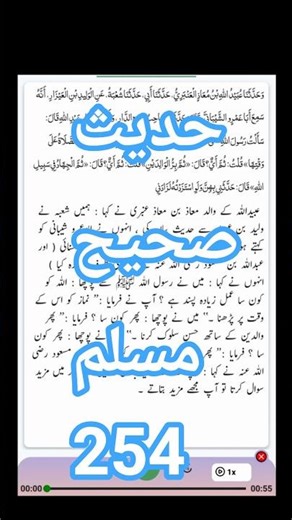 وَحَدَّثَنَا عُبَيْدُ اللهِ بْنُ مُعَاذٍ الْعَنْبَرِيُّ، حَدَّثَنَا أَبِي، حَدَّثَنَا شُعْبَةُ، عَنِ الْوَلِيدِ بْنِ الْعَيْزَارِ، أَنَّهُ
سَمِعَ أَبَا عَمْرٍو الشَّيْبَانِيَّ، قَالَ: الدَّارِ، قَالَ:
حدیث
سَأَلْتُ رَسُولَ اللهِ
وَقْتِهَا» قُلْتُ: ثُمَّ أَيٌّ؟ قَالَ: «ثُمَّ بِرُّ الْوَالِدَيْنِ» قُلْتُ: ثُمَّ أَيٌّ؟ قَالَ: «ثُمَّ الْجِهَادُ فِي سَبِيلِ
اللهِ» قَالَ: حَدَّثَنِي بِهِنَّ وَلَوِ اسْتَزَدْتُهُ لَزَادَنِي
عبیداللہ کے والد معاذ بن معاذ عنبری نے کہا : ہمیں شعبہ نے
ولید بن سے حدیث انہوں نے عمرو شیبانی کو
کہتے ( اور
صحیح
عبداللہ بن مسعود رضی اللہ عنہ کیا )
انہوں نے کہا : میں نے رسول اللہ ﷺ سے پوچھا : اللہ کو
کون سا عمل زیادہ پسند ہے ؟ آپ نے فرمایا : ’’ نماز کو اس کے
وقت پر پڑھنا ۔‘‘ میں نے پوچھا : پھر کون سا ؟ فرمایا : ’’ پھر
مسلم
والدین کے ساتھ حسن سلوک کرنا ۔‘‘ پوچھا : پھر کون
سا ؟ فرمایا : ’’ پھر مسعود رضی
اللہ عنہ نے کہا میں مزید
سوال کرتا تو آپ مجھے مزید بتاتے ۔
254
1x
00:00 00:55